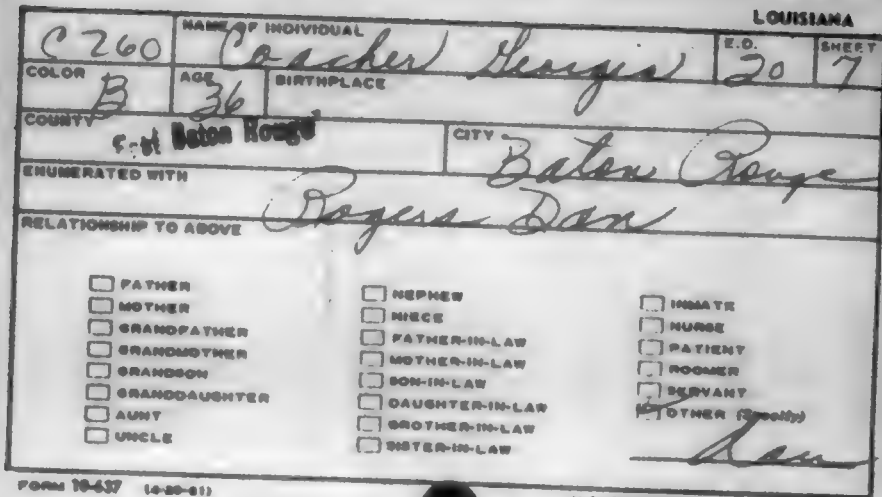 LOUISIANA
C 260 NAME OF INDIVIDUAL Coacher Georgia E.D. 20 SHEET 7
COLOR B AGE 36 BIRTHPLACE
COUNTY East Baton Rouge CITY Baton Rouge
ENUMERATED WITH Rogers Dan
RELATIONSHIP TO ABOVE
FATHER
MOTHER
GRANDFATHER
GRANDMOTHER
GRANDSON
GRANDDAUGHTER
AUNT
UNCLE
NEPHEW
NIECE
FATHER-IN-LAW
MOTHER-IN-LAW
SON-IN-LAW
DAUGHTER-IN-LAW
BROTHER-IN-LAW
SISTER-IN-LAW
INMATE
NURSE
PATIENT
ROOMER
SERVANT
OTHER (Specify)
FORM 10-637 (4-20-61)